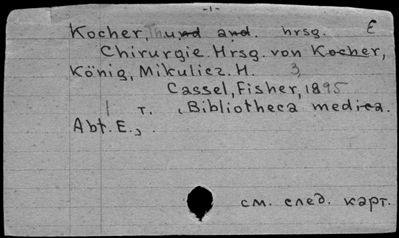 -1-
Kocher, Th und and. hrsg. E
Chirurgie. Hrsg. von Kocher,
König, Mikulicz. H. 3
Cassel, Fisher, 1895
1 т. Bibliotheca medica.
Abt. E.,
см. след. карт.